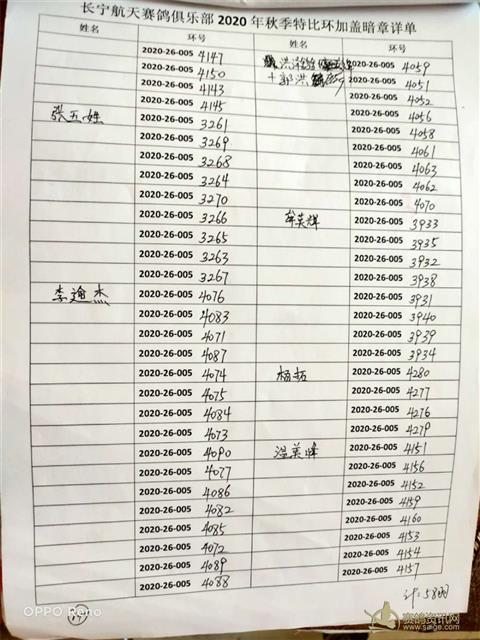 长宁航天赛鸽俱乐部 2020 年秋季特比环加盖暗章详单
姓名 环号 姓名 环号
2020-26-005 4147
2020-26-005 4150
2020-26-005 4143
2020-26-005 4145
张五姓 2020-26-005 3261
2020-26-005 3269
2020-26-005 3268
2020-26-005 3264
2020-26-005 3270
2020-26-005 3266
2020-26-005 3265
2020-26-005 3263
2020-26-005 3267
李逾杰 2020-26-005 4076
2020-26-005 4083
2020-26-005 4071
2020-26-005 4087
2020-26-005 4074
2020-26-005 4075
2020-26-005 4084
2020-26-005 4073
2020-26-005 4090
2020-26-005 4077
2020-26-005 4086
2020-26-005 4082
2020-26-005 4085
2020-26-005 4072
2020-26-005 4089
2020-26-005 4088
洪泽 2020-26-005 4059
+郭洪 2020-26-005 4051
2020-26-005 4052
2020-26-005 4056
2020-26-005 4058
2020-26-005 4061
2020-26-005 4063
2020-26-005 4062
2020-26-005 4070
牟英辉 2020-26-005 3933
2020-26-005 3935
2020-26-005 3932
2020-26-005 3938
2020-26-005 3931
2020-26-005 3940
2020-26-005 3939
2020-26-005 3934
杨拓 2020-26-005 4280
2020-26-005 4277
2020-26-005 4276
2020-26-005 4279
温英峰 2020-26-005 4151
2020-26-005 4156
2020-26-005 4152
2020-26-005 4159
2020-26-005 4160
2020-26-005 4153
2020-26-005 4154
2020-26-005 4157
计:58羽
17
OPPO Reno
赛鸽资讯网
www.saige.com